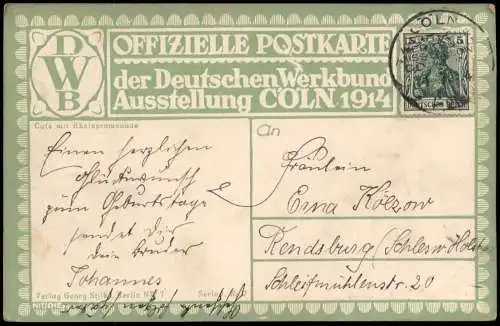 DWB
OFFIZIELLE POSTKARTE
der Deutschen Werkbund
Ausstellung CÖLN 1914
CÖLN
5
Café mit Rheinpromenade
An
Einen herzlichen
Glückwunsch
zum Geburtstage
sendet dir
dein Bruder
Johannes
Fräulein
Erna Kölzow
Rendsburg (Schlesw Holst
Schleifmühlenstr. 20
Verlag Georg Stilke Berlin NW 7
Serie